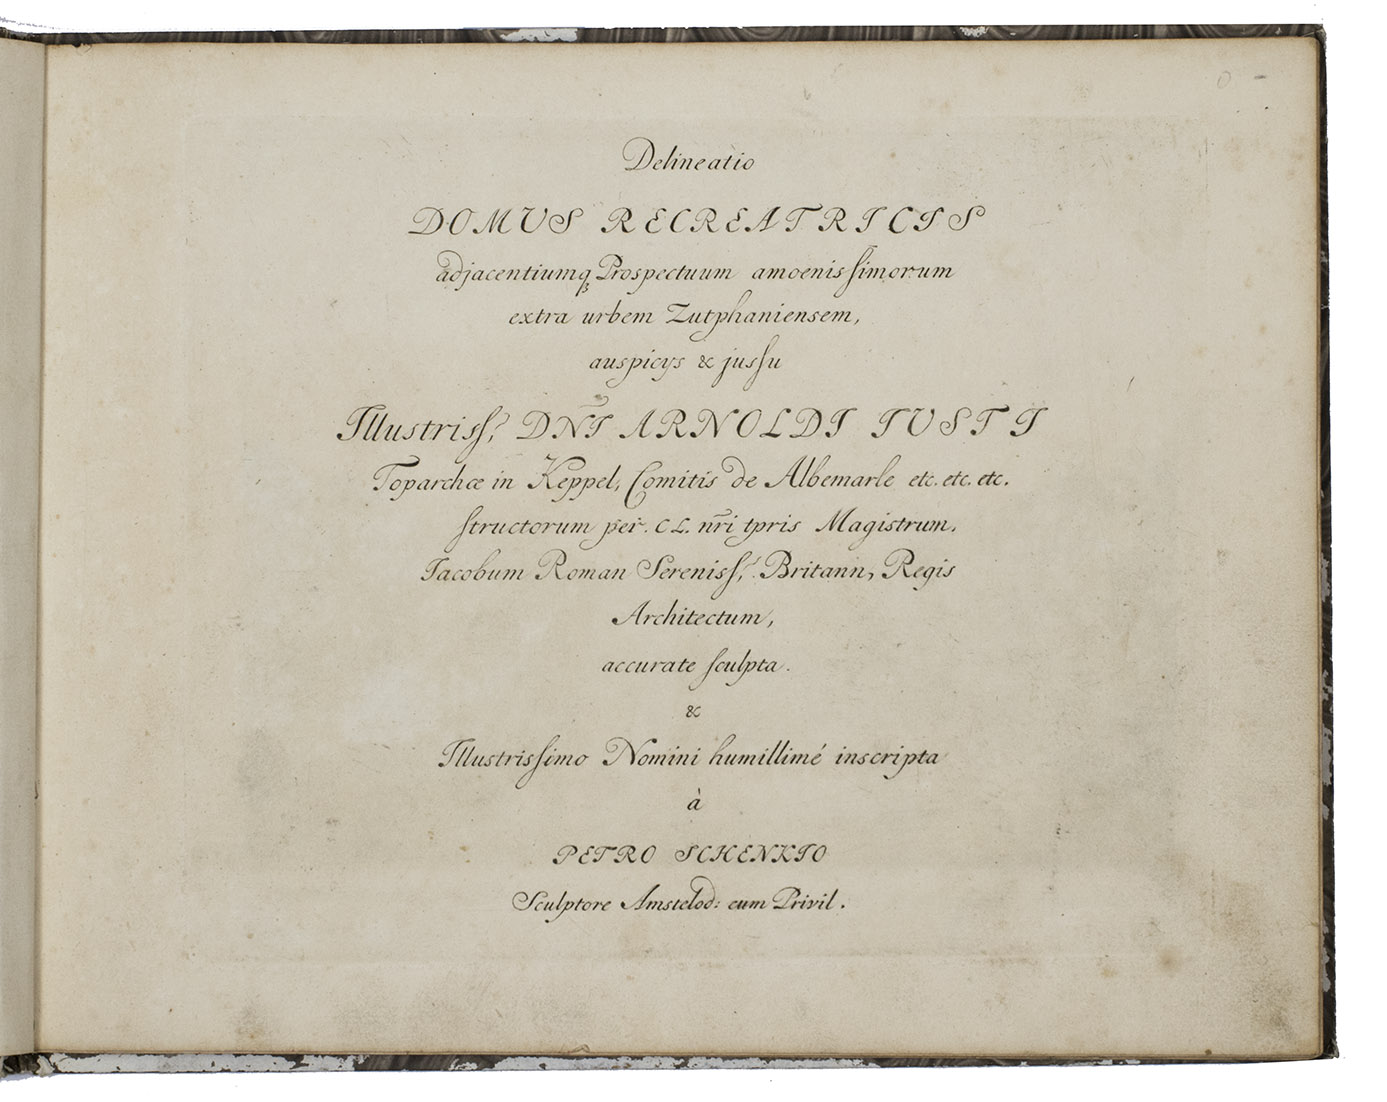 Delineatio
DOMUS RECREATRICIS
adjacentiumq́ꝫ Prospectuum amoenissimorum
extra urbem Zutphaniensem,
auspicys & jussu
Illustriss.ⁱ DN̄I ARNOLDI IUSTI
Toparchæ in Keppel, Comitis de Albemarle etc. etc. etc.
structorum per. CL. nr̄i tp̄ris Magistrum.
Iacobum Roman Sereniss.ⁱ Britann, Regis
Architectum,
accurate sculpta.
&
Illustrissimo Nomini humillimé inscripta
à
PETRO SCHENKIO
Sculptore Amstelod: cum Privil.